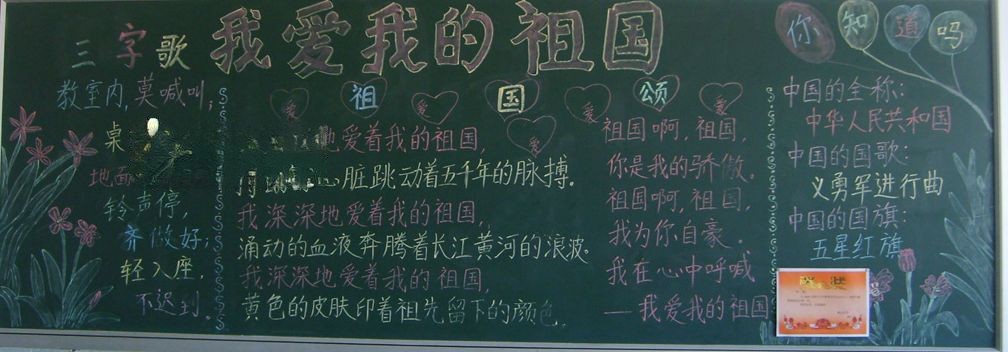 我爱我的祖国
三字歌
教室内,莫喊叫;
桌
地面
铃声停,
齐做好;
轻入座,
不迟到.
爱
祖
爱
国
爱
颂
爱
爱
地爱着我的祖国,
心脏跳动着五千年的脉搏。
我深深地爱着我的祖国,
涌动的血液奔腾着长江黄河的浪波。
我深深地爱着我的祖国,
黄色的皮肤印着祖先留下的颜色.
祖国啊,祖国,
你是我的骄傲。
祖国啊,祖国,
我为你自豪。
我在心中呼喊
——我爱我的祖国
你知道吗
中国的全称:
中华人民共和国
中国的国歌:
义勇军进行曲。
中国的国旗:
五星红旗
奖状